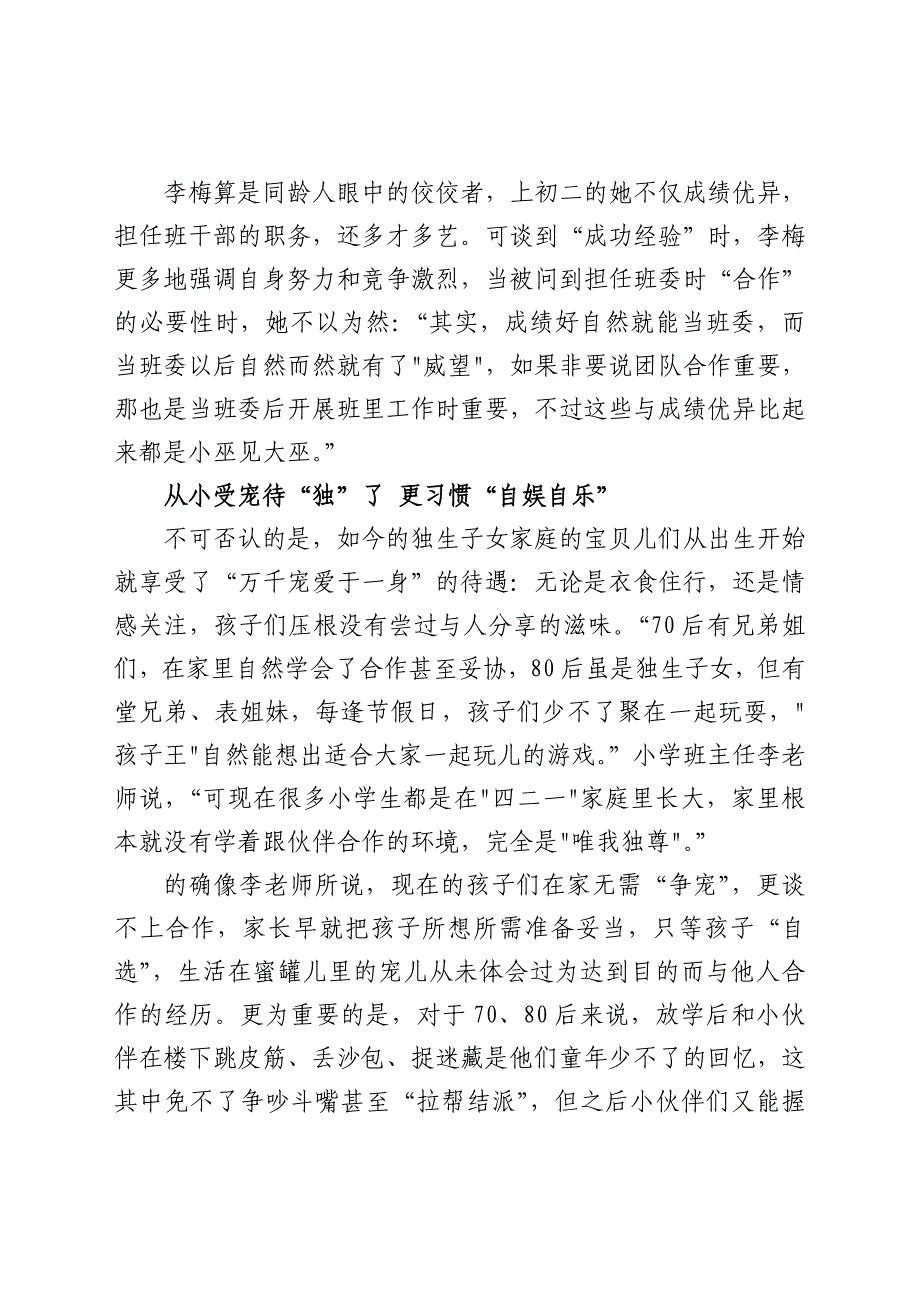 李梅算是同龄人眼中的佼佼者，上初二的她不仅成绩优异，
担任班干部的职务，还多才多艺。可谈到“成功经验”时，李梅
更多地强调自身努力和竞争激烈，当被问到担任班委时“合作”
的必要性时，她不以为然：“其实，成绩好自然就能当班委，而
当班委以后自然而然就有了"威望"，如果非要说团队合作重要，
那也是当班委后开展班里工作时重要，不过这些与成绩优异比起
来都是小巫见大巫。”
从小受宠待“独”了 更习惯“自娱自乐”
不可否认的是，如今的独生子女家庭的宝贝儿们从出生开始
就享受了“万千宠爱于一身”的待遇：无论是衣食住行，还是情
感关注，孩子们压根没有尝过与人分享的滋味。“70后有兄弟姐
们，在家里自然学会了合作甚至妥协，80后虽是独生子女，但有
堂兄弟、表姐妹，每逢节假日，孩子们少不了聚在一起玩耍，"
孩子王"自然能想出适合大家一起玩儿的游戏。”小学班主任李老
师说，“可现在很多小学生都是在"四二一"家庭里长大，家里根
本就没有学着跟伙伴合作的环境，完全是"唯我独尊"。”
的确像李老师所说，现在的孩子们在家无需“争宠”，更谈
不上合作，家长早就把孩子所想所需准备妥当，只等孩子“自
选”，生活在蜜罐儿里的宠儿从未体会过为达到目的而与他人合
作的经历。更为重要的是，对于70、80后来说，放学后和小伙
伴在楼下跳皮筋、丢沙包、捉迷藏是他们童年少不了的回忆，这
其中免不了争吵斗嘴甚至“拉帮结派”，但之后小伙伴们又能握